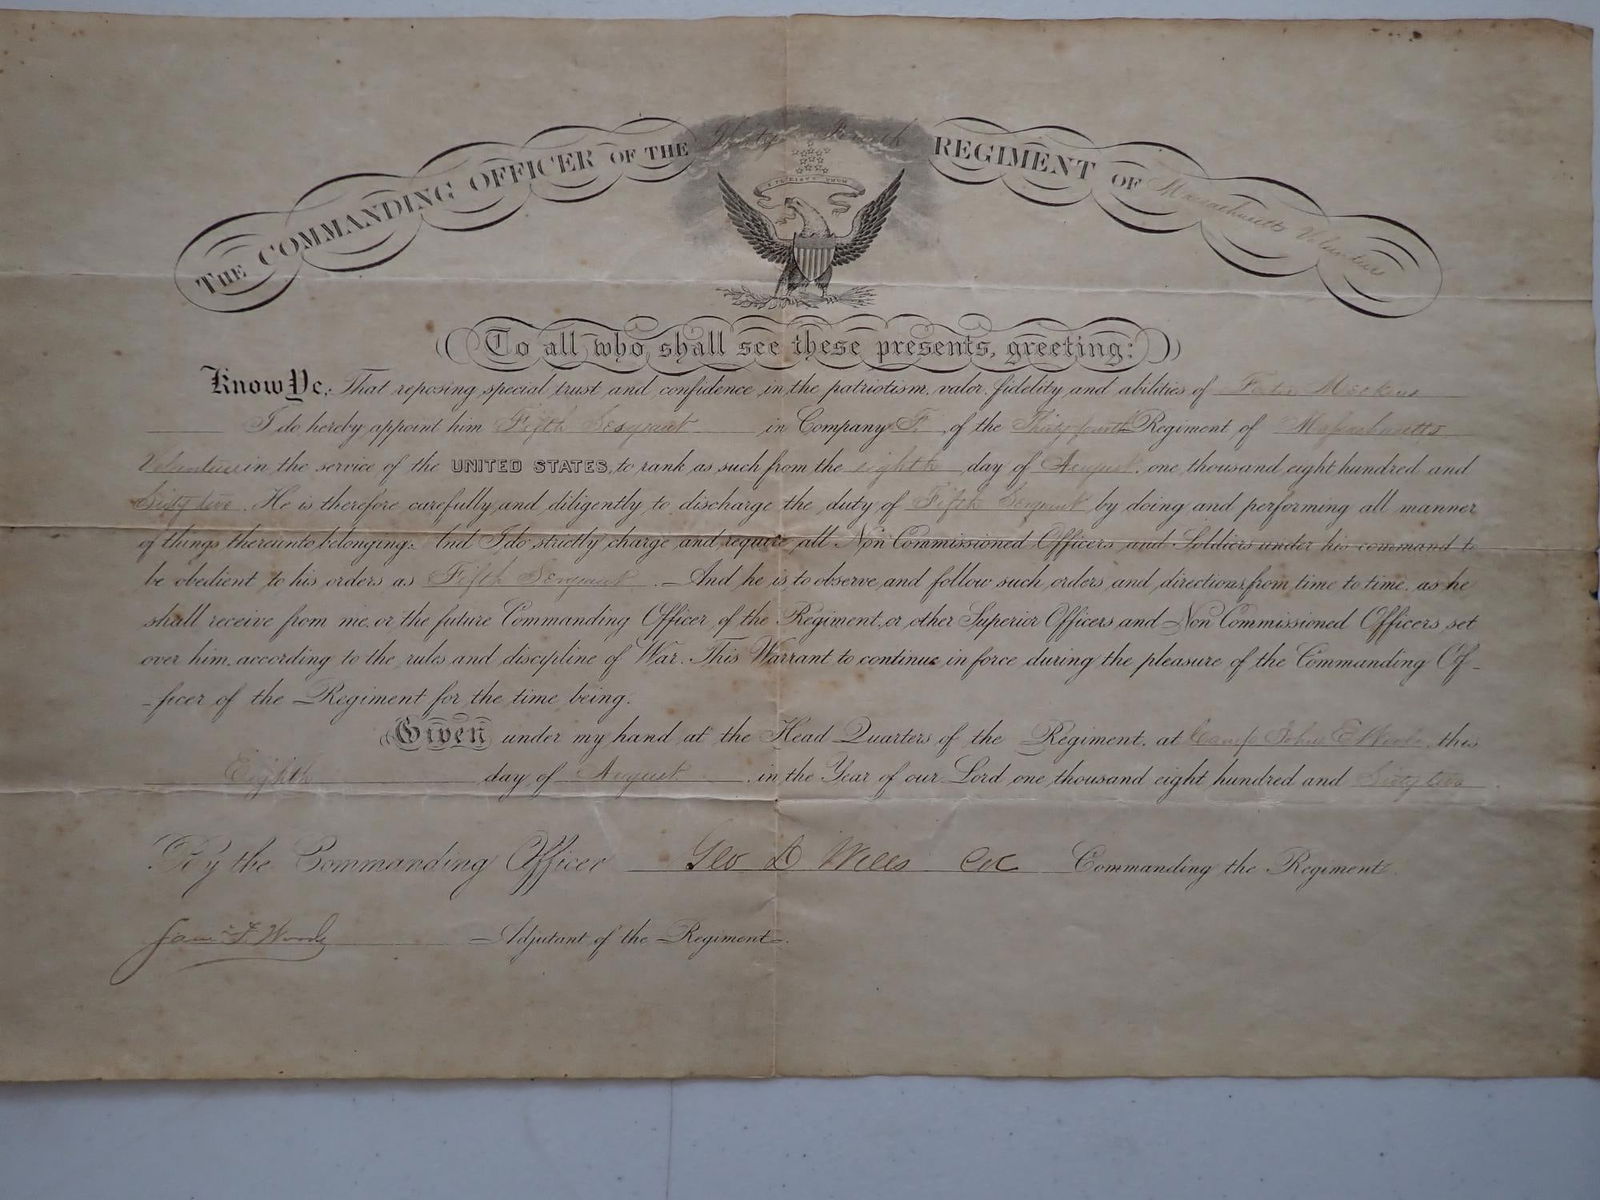 THE COMMANDING OFFICER OF THE Thirty Fourth REGIMENT OF Massachusetts Volunteers
To all who shall see these presents, greeting:
Know Ye, That reposing special trust and confidence in the patriotism, valor, fidelity and abilities of
I do hereby appoint him Fifth Sergeant in Company F, of the Thirty fourth Regiment of Massachusetts
Volunteers in the service of the UNITED STATES, to rank as such from the eighth day of August, one thousand eight hundred and
Sixty two. He is therefore carefully and diligently to discharge the duty of Fifth Sergeant by doing and performing all manner
of things thereunto belonging. And I do strictly charge and require all Non Commissioned Officers and Soldiers under his command to
be obedient to his orders as Fifth Sergeant. And he is to observe and follow such orders, and directions, from time to time, as he
shall receive from me, or the future Commanding Officer of the Regiment, or other Superior Officers and Non Commissioned Officers set
over him, according to the rules and discipline of War. This Warrant to continue in force during the pleasure of the Commanding Of-
-ficer of the Regiment for the time being.
Given under my hand at the Head Quarters of the Regiment, at Camp John E Wool, this
Eighth day of August, in the Year of our Lord one thousand eight hundred and Sixty two
By the Commanding Officer Geo D Wells Col Commanding the Regiment.
Saml F Woods Adjutant of the Regiment.